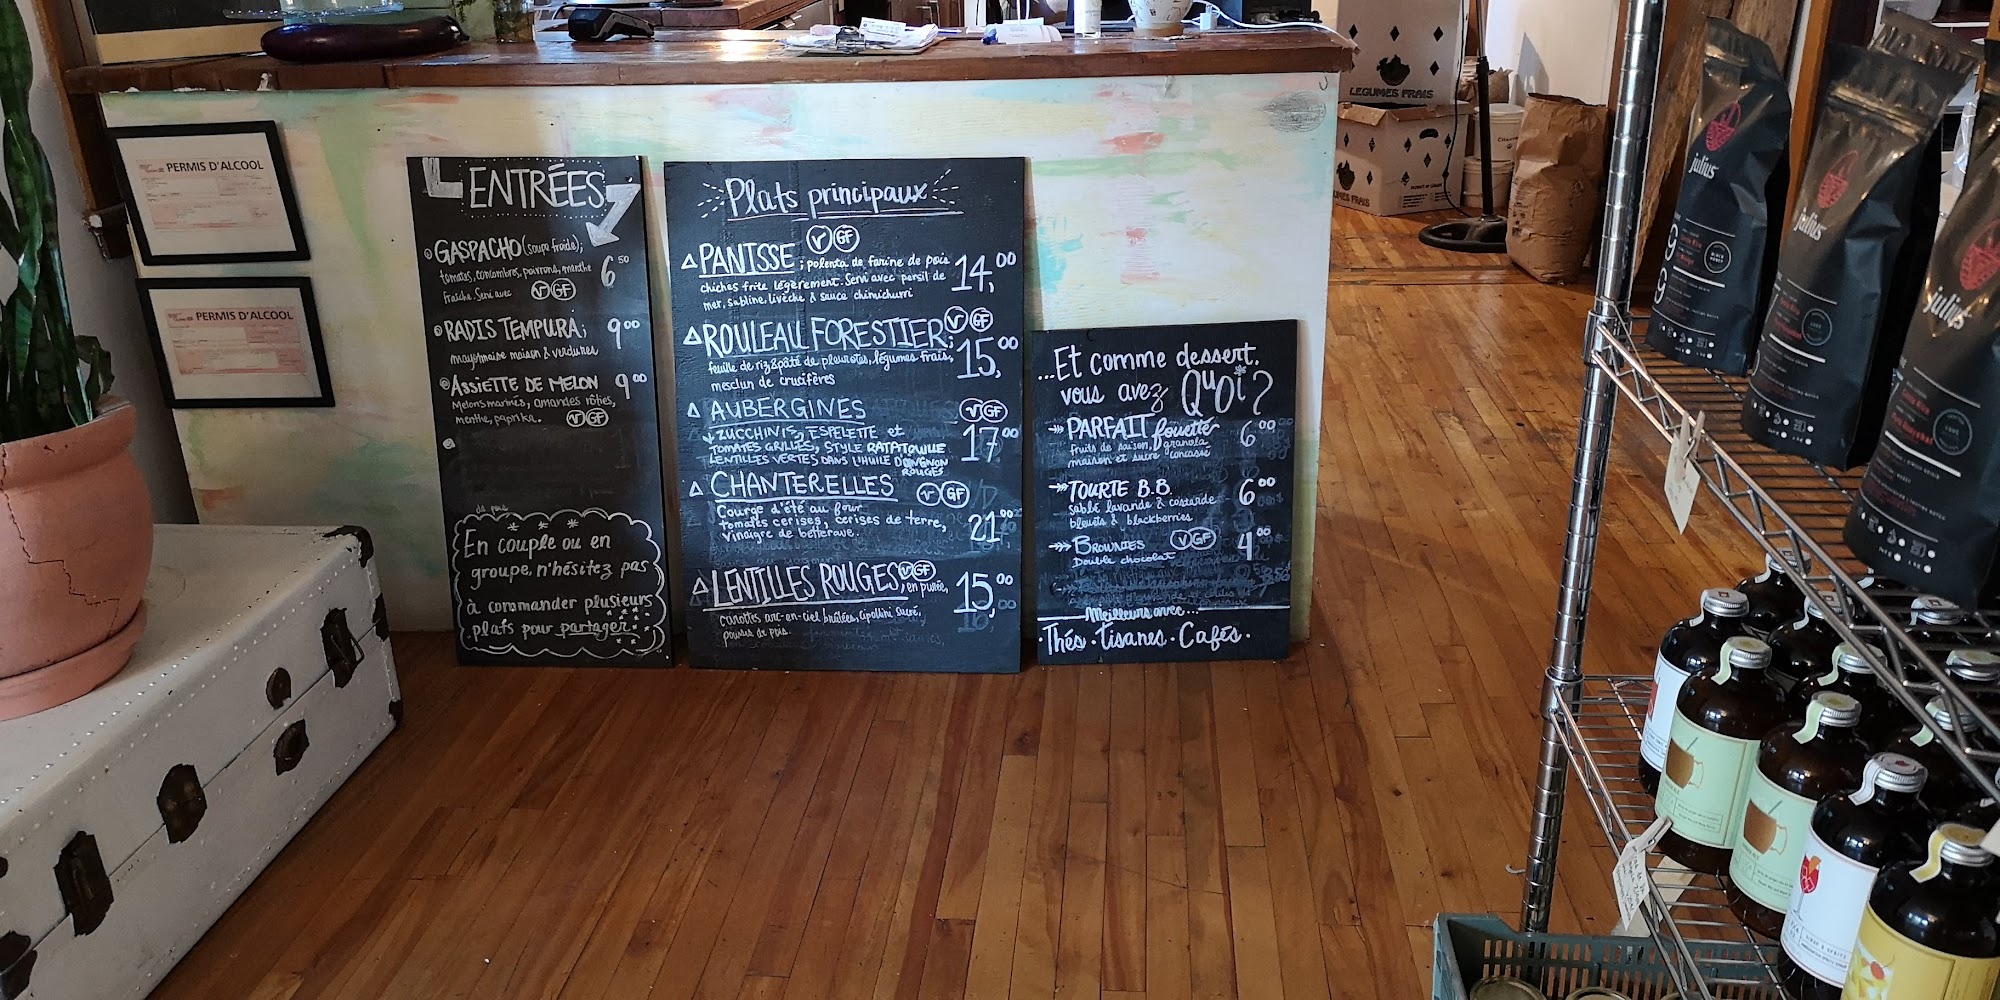 PERMIS D'ALCOOL
PERMIS D'ALCOOL
ENTRÉES
GASPACHO (soupe froide);
tomates, concombres, poivrons, menthe
fraîche. Servi avec V GF
6 50
RADIS TEMPURA; 9 00
mayonnaise maison & verdures
ASSIETTE DE MELON 9 00
Melons marinés, amandes rôties,
menthe, paprika. V GF
En couple ou en
groupe, n'hésitez pas
à commander plusieurs
plats pour partager.
Plats principaux
V GF
PANISSE ; polenta de farine de pois 14, 00
chiches frite légèrement. Servi avec persil de
mer, sabline, livèche & sauce chimichurri
ROULEAU FORESTIER; V GF
feuille de riz & pâté de pleurotes, légumes frais, 15, 00
mesclun de crucifères
AUBERGINES V GF
ZUCCHINIS, ESPELETTE et 17 00
TOMATES GRILLÉS, STYLE RATATOUILLE
LENTILLES VERTES DANS L'HUILE D'OIGNON
ROUGES
CHANTERELLES V GF
Courge d'été au four
tomates cerises, cerises de terre, 21 00
vinaigre de betterave.
LENTILLES ROUGES V GF, en purée, 15, 00
carottes arc-en-ciel brûlées, cipollini sucré,
pousses de pois.
...Et comme dessert,
vous avez QuOi?
PARFAIT fouetté 6 00
fruits de saison, granola
maison et sucre concassé
TOURTE B.B. 6 00
sablé lavande & costarde
bleuets & blackberries
BROWNIES V GF 4 00
Double chocolat
Meilleurs avec...
Thés · Tisanes · Cafés.
LEGUMES FRAIS
julius
julius
julius